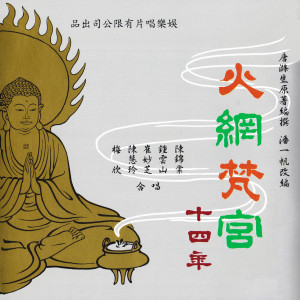 娛樂唱片有限公司出品
唐滌生原著編撰
潘一帆改編
火網梵宮
十四年
陳錦棠
鍾雲山
崔妙芝
陳慧玲
梅欣
合唱